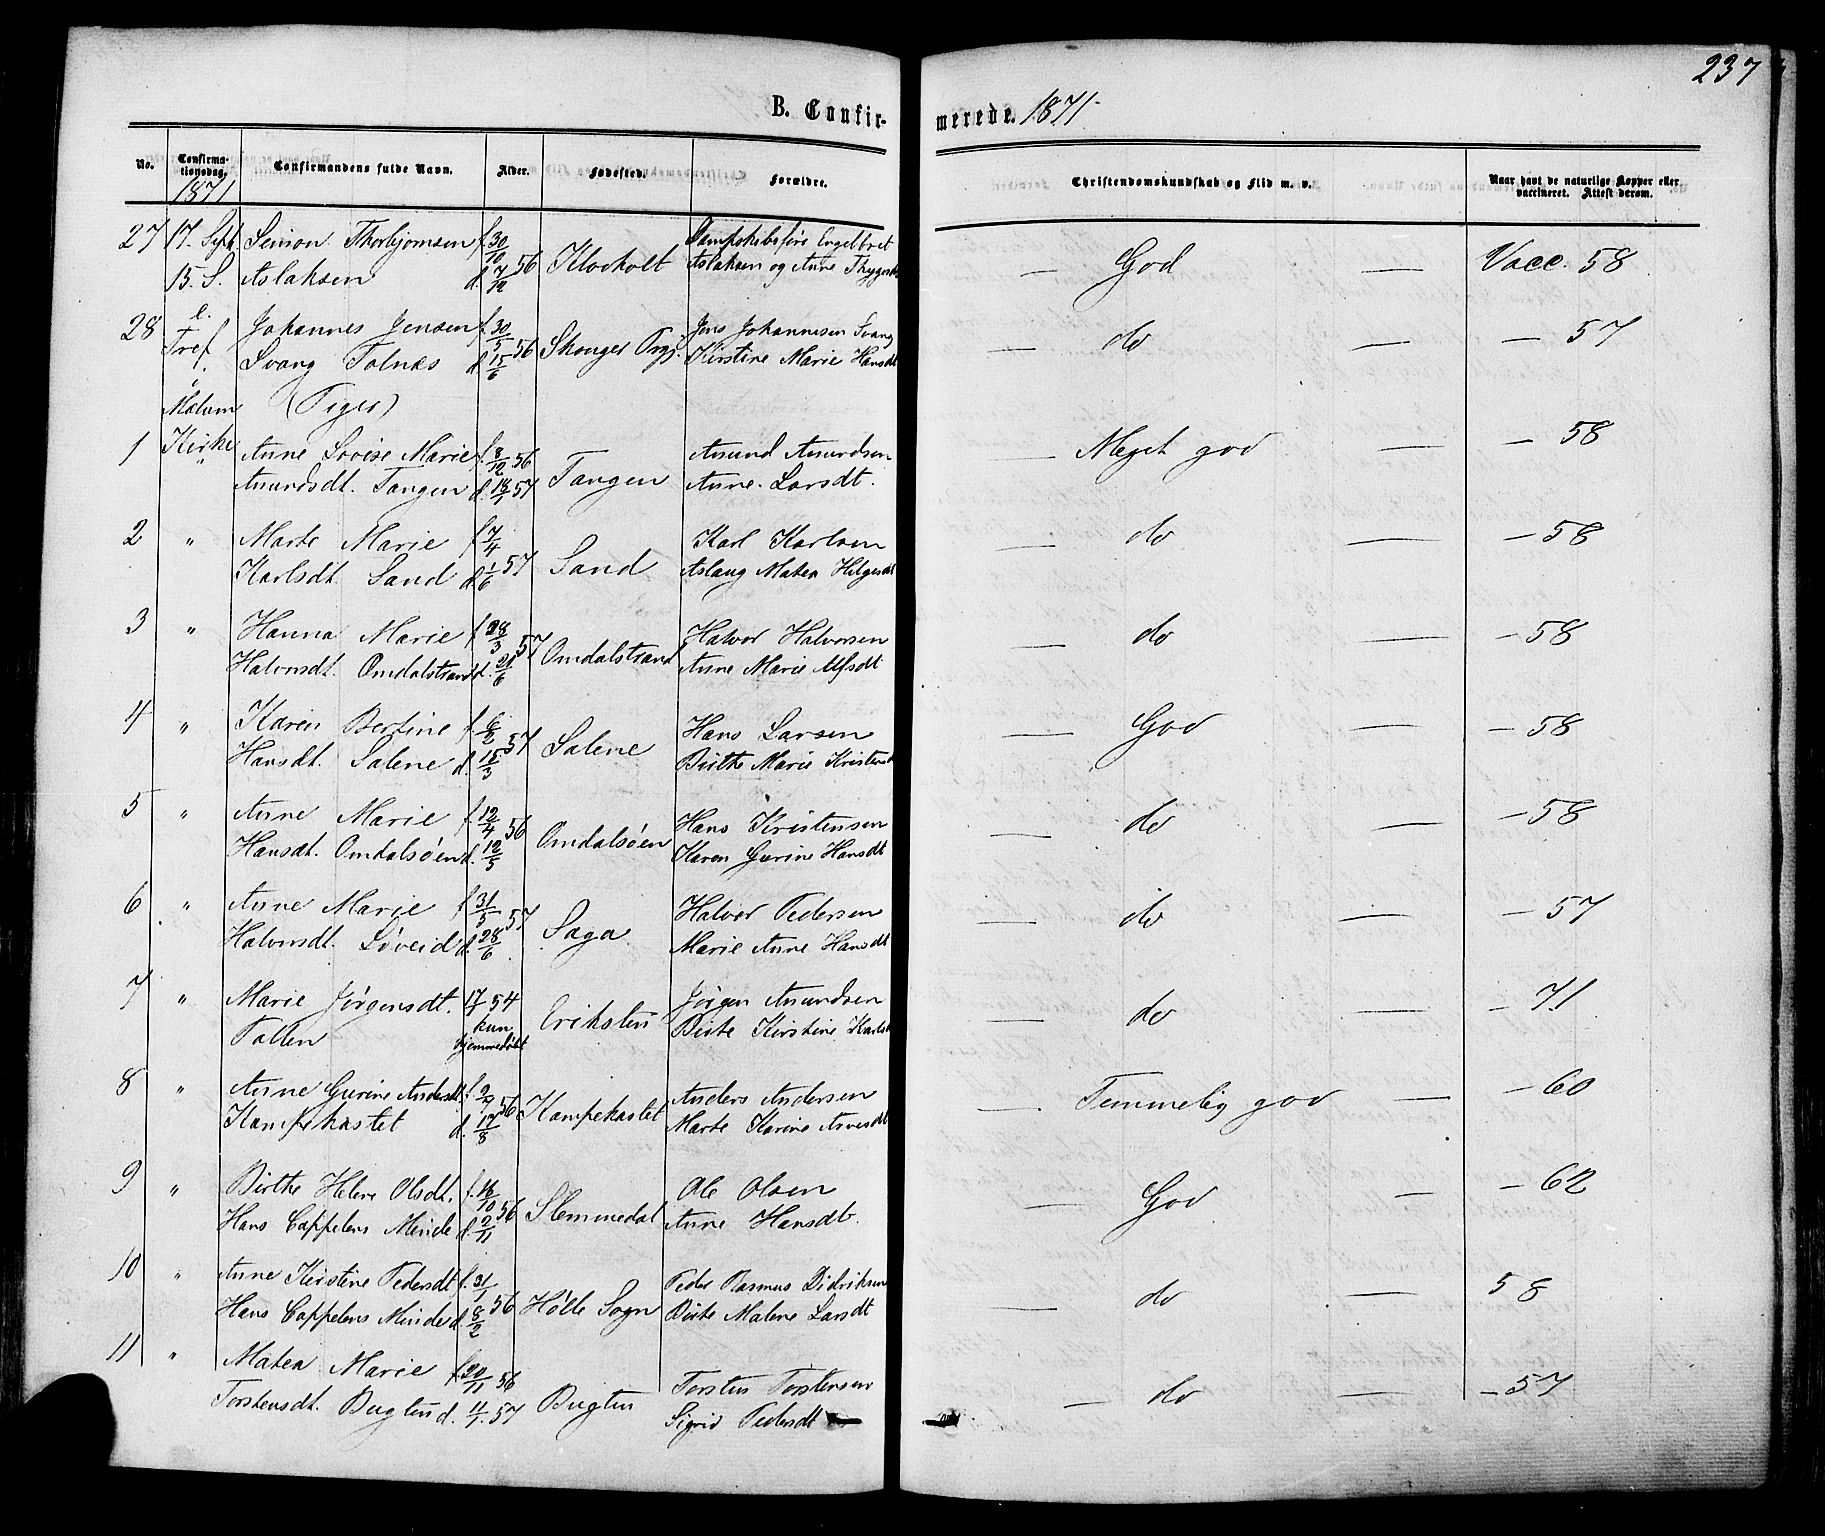 237
B. Confir-
merede. 1871.
No.
Confirma-
tionsdag.
1871
Confirmandens fulde Navn.
Alder.
Fødested.
Forældre.
Christendomskundskab og Flid m. v.
Naar havt de naturlige Kopper eller
vaccineret. Attest derom.
27 17. Sept. Simon Thorbjornsen f. 30/10 Dampskibsfører Engelbret
15. S. Aslaksen d. 7/12 56 Klovholt Aslaksen og Anne Thygesdt — God — Vacc. 58
28 e. Johannes Jensen f. 30/5 Jens Johannesen Svang
Tref. Svang Folnæs d. 15/6 56 Skouger Prgj. Kirstine Marie Hansdt — do — — 57
i
Mælum (Piger)
1 Kirke Anne Lovise Marie f. 8/12 56 Amund Amundsen
" Amundsdt. Tangen d. 18/1 57 Tangen Anne Larsdt. — Meget god — — 58
2 " Marte Marie f. 7/4 Karl Karlsen
Karlsdt. Sand d. 1/6 57 Sand Aslaug Maten Helgesdt — do — — 58
3 " Hanna Marie f. 28/3 Halvor Halvorsen
Halvorsdt. Omdalstrand d. 21/6 57 Omdalstrand Anne Marie Alfsdt — do — — 58
4 " Karen Bertine f. 6/2 Hans Larsen
Hansdt. Salene d. 15/3 57 Salene Birthe Marie Kristensdt — God — — 58
5 " Anne Marie f. 12/4 Hans Kristensen
Hansdt. Omdalsøen d. 12/5 56 Omdalsøen Karen Gurine Hansdt — do — — 58
6 " Anne Marie f. 31/5 Halvor Pedersen
Halvorsdt. Løveid d. 28/6 57 Saga Marie Anne Hansdt — do — — 57
7 " Marie Jørgensdt. 17/1 54 Jørgen Amundsen
Follen kun Erikstens Birte Kirstine Karlsdt — do — — 71
hjemmedøbt
8 " Anne Gurine Andersdt. f. 2/7 Anders Andersen
Kampekastet d. 17/8 56 Kampekastet Marte Karine Arnesdt — Temmelig god — — 60
9 " Birthe Helene Olsdt. f. 16/10 Ole Olsen
Hans Cappelens Minde d. 2/11 56 Slemmedal Anne Hansdt. — God — — 62
10 " Anne Kirstine Pedersdt. f. 31/1 Peder Rasmus Didriksen
Hans Cappelens Minde d. 8/2 56 Hølle Sogn Birte Malene Larsdt — do — 58
11 " Maten Marie f. 20/11 56 Torsten Torstensen
Torstensdt. Bugten d. 11/1 57 Bugten Sigrid Pedersdt — do — — 57